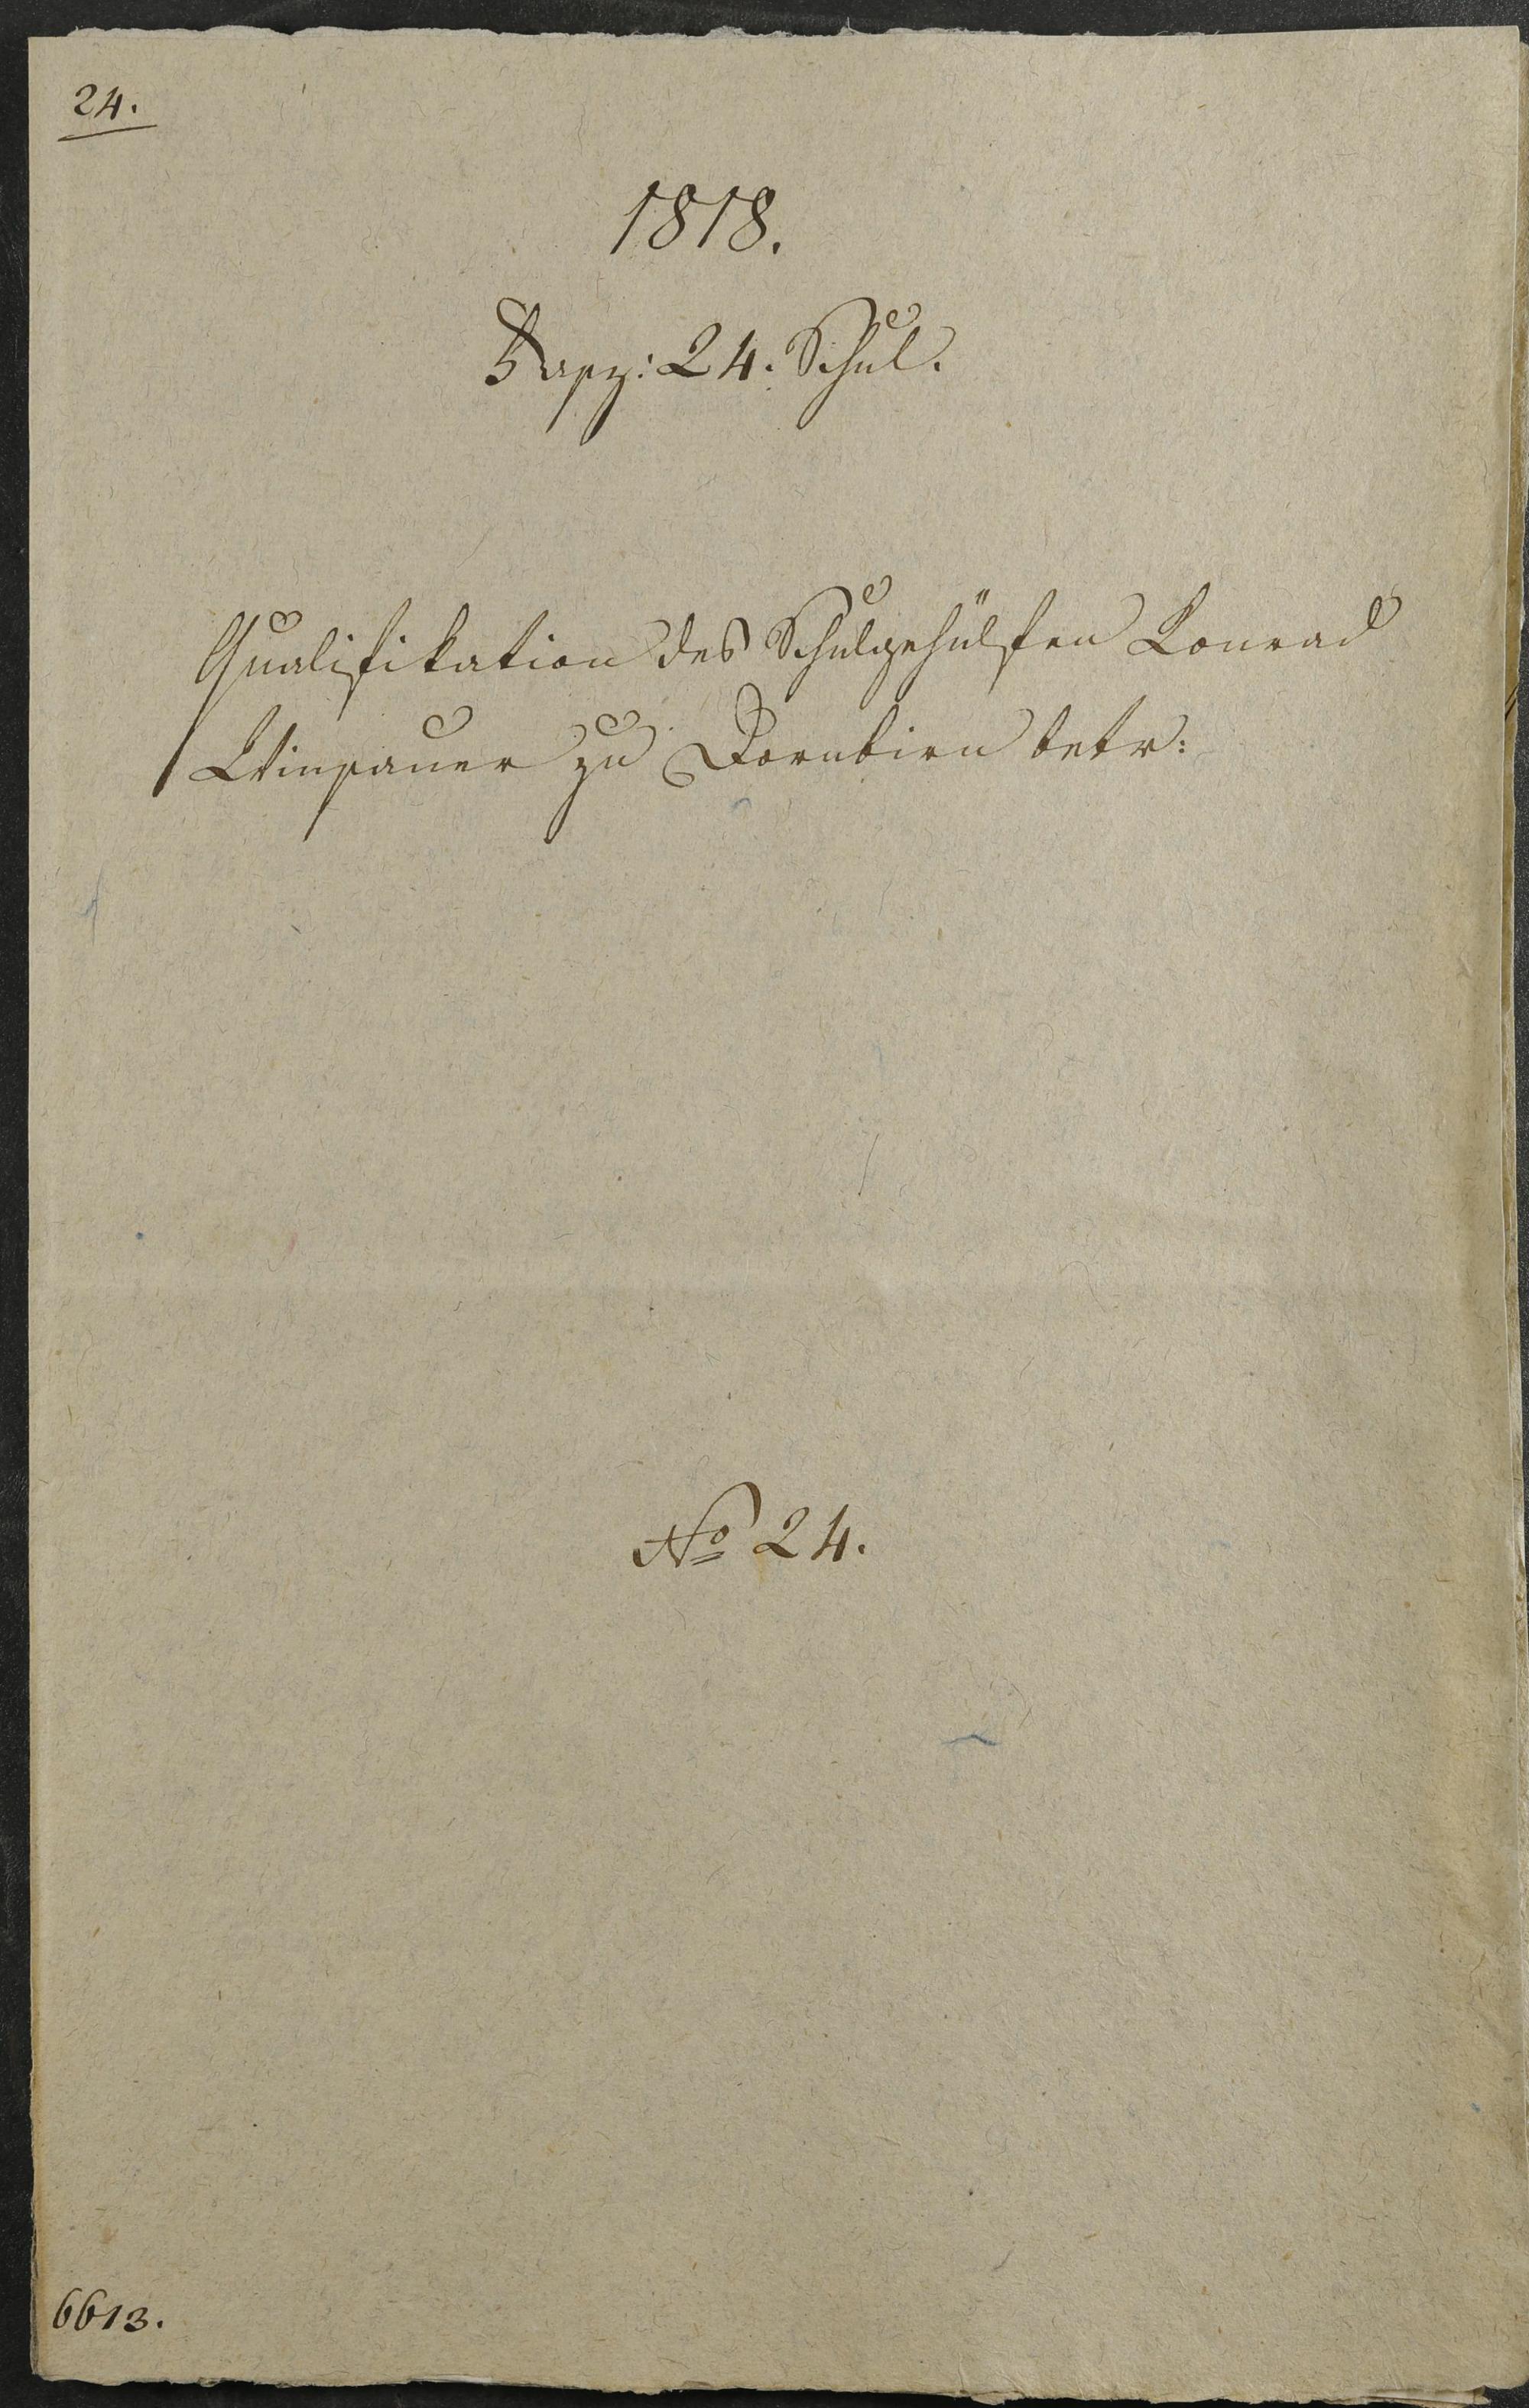 24.
1818.
Fasz: 24. Schul.
Qualifikation des Schulgehülfen Conrad
zu Dornbirn betr:
No 24.
6613.